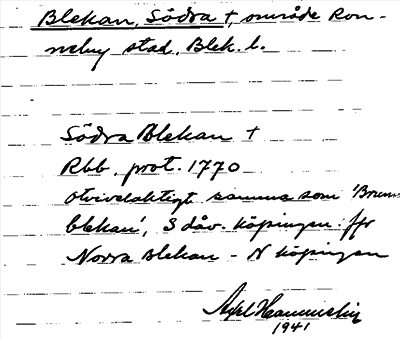 Blekan, Södra †, område Ron-
neby stad. Blek. l.
Södra Blekan †
Rbb. prot. 1770
otvivelaktigt samma som 'Brunns
blekan', S dåv. köpingen. jfr
Norra Blekan - N köpingen
Axel Hamnelin
1941